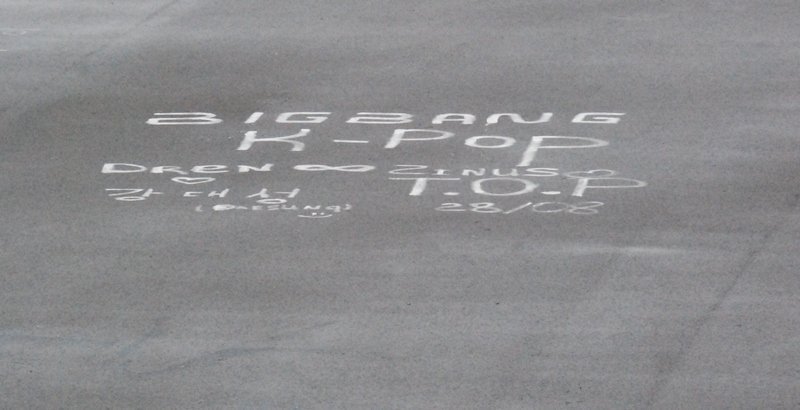 BIGBANG
K-POP
DREN ∞ ZINUS
강대성 T.O.P
(DAESUNG) 28/08